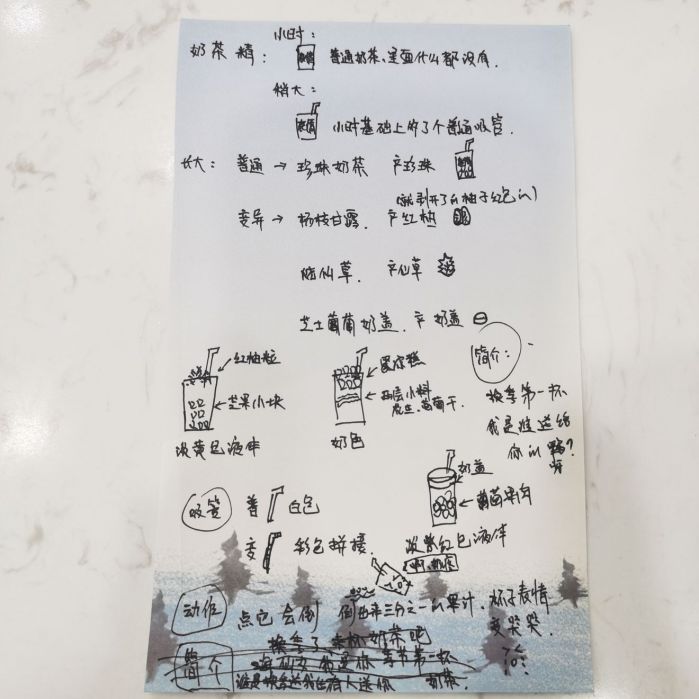 小时:
奶茶精: 普通奶茶,里面什么都没有.
稍大:
小时基础上的了个普通吸管.
长大: 普通→珍珠奶茶 产珍珠
(就剥开了的柚子红色的)
变异→杨枝甘露. 产红柚
烧仙草. 产仙草
芝士葡萄奶盖. 产奶盖
简介:
红柚粒
芒果小块
淡黄色液体
两层小料
花生、葡萄干
奶色
换季第一杯
我是谁送给
你的
呀?
奶盖
葡萄果肉
淡紫红色液体
吸管 普 白色
变 彩色拼接.
动作 点它会倒 倒出来三分之一的果汁. 杯子表情
变哭哭.
换季了 来杯奶茶吧
简介
奶茶.